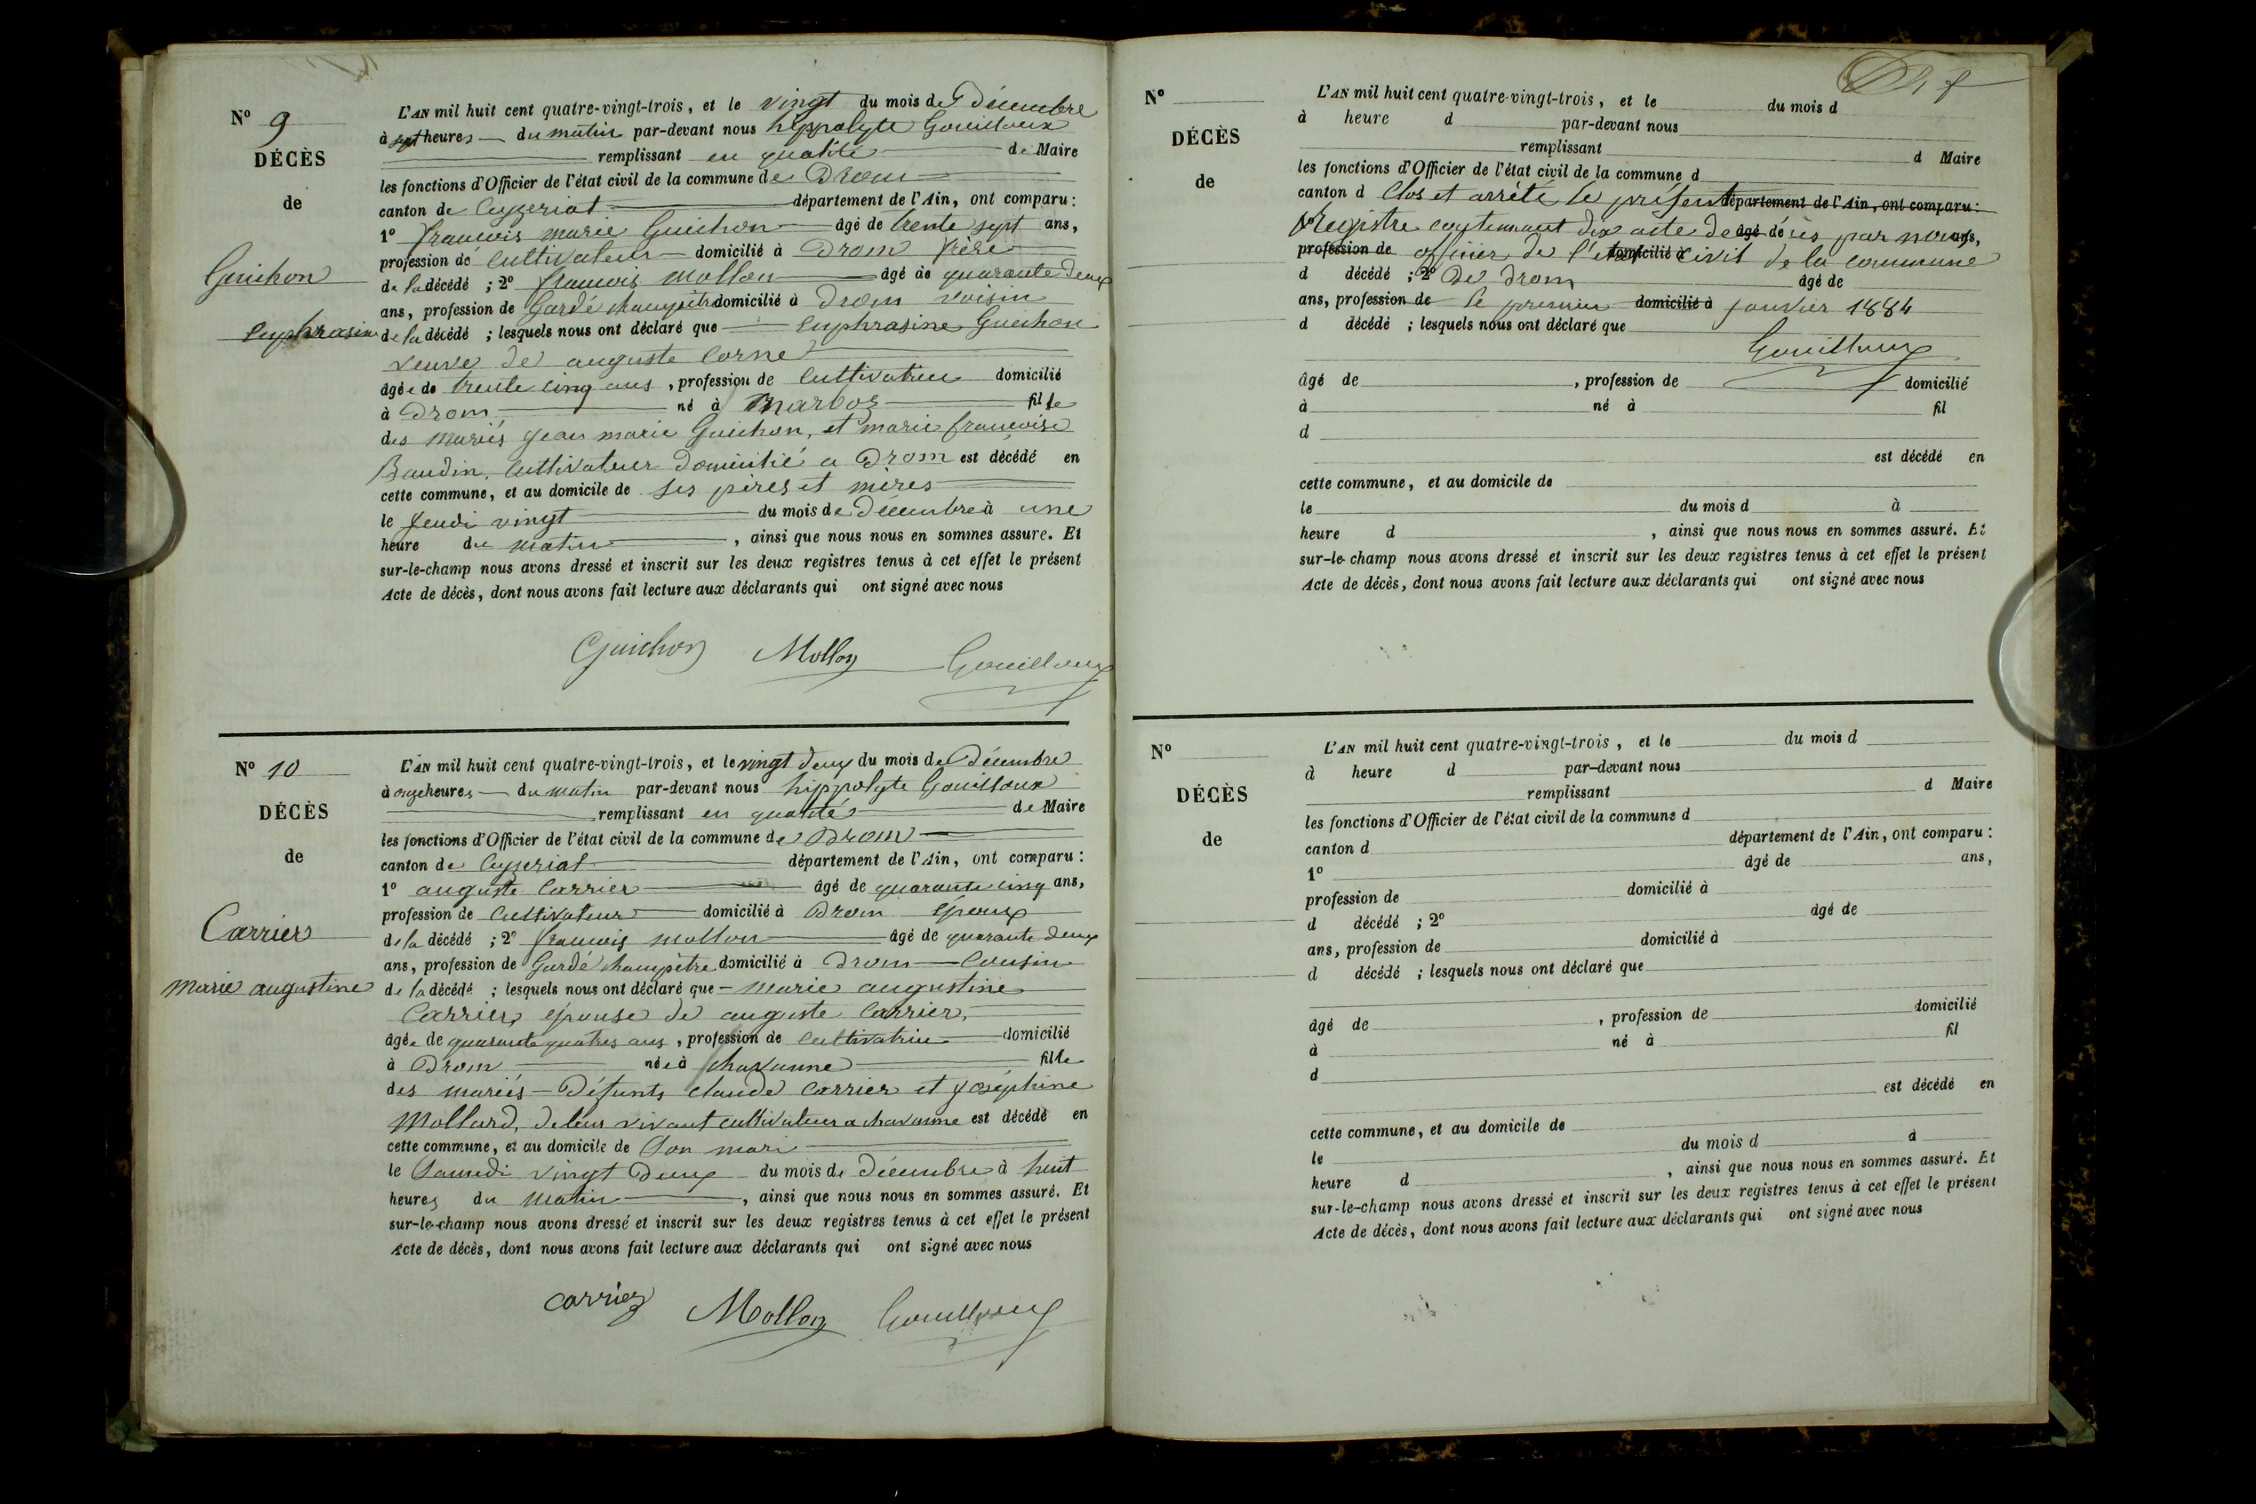 N° 9
DÉCÈS
de
Guichon
euphrasine
L'AN mil huit cent quatre-vingt-trois, et le vingt du mois de Décembre
à sept heures du matin par-devant nous hippolyte Gouilloux
remplissant en qualité de Maire
les fonctions d'Officier de l'état civil de la commune de Drom
canton de Ceyzeriat département de l'Ain, ont comparu :
1° francois marie Guichon âgé de trente sept ans,
profession de Cultivateur domicilié à Drom frère
de la décédé ; 2° francois mollon âgé de quarante deux
ans, profession de Garde champêtre domicilié à Drom voisin
de la décédé ; lesquels nous ont déclaré que euphrasine Guichon
veuve de auguste Corne
âgée de trente cinq ans, profession de Cultivatrice domicilié
à Drom né à Marboz fille
des mariés Jean marie Guichon, et marie francoise
Baudin, Cultivateur domicilié a Drom est décédé en
cette commune, et au domicile de ses pères et mères
le Jeudi vingt du mois de Décembre à une
heure du matin, ainsi que nous nous en sommes assuré. Et
sur-le-champ nous avons dressé et inscrit sur les deux registres tenus à cet effet le présent
Acte de décès, dont nous avons fait lecture aux déclarants qui ont signé avec nous
Guichon Mollon Gouilloux
N° 10
DÉCÈS
de
Carrier
Marie augustine
L'AN mil huit cent quatre-vingt-trois, et le vingt deux du mois de Décembre
à onze heures du matin par-devant nous hippolyte Gouilloux
remplissant en qualité de Maire
les fonctions d'Officier de l'état civil de la commune de Drom
canton de Ceyzeriat département de l'Ain, ont comparu :
1° auguste Carrier âgé de quarante cinq ans,
profession de Cultivateur domicilié à Drom époux
de la décédé ; 2° francois mollon âgé de quarante deux
ans, profession de Garde champêtre domicilié à Drom Cousin
de la décédé ; lesquels nous ont déclaré que marie augustine
Carrier, épouse de auguste Carrier,
âgée de quarante quatres ans, profession de Cultivatrice domicilié
à Drom née à chavanne fille
des mariés Défunts claude Carrier et Joséphine
Mollard, de leur vivant cultivateur a chavanne est décédé en
cette commune, et au domicile de Son mari
le Samedi vingt Deux du mois de Décembre à huit
heures du matin, ainsi que nous nous en sommes assuré. Et
sur-le-champ nous avons dressé et inscrit sur les deux registres tenus à cet effet le présent
Acte de décès, dont nous avons fait lecture aux déclarants qui ont signé avec nous
Carrier Mollon Gouilloux
N°
DÉCÈS
de
L'AN mil huit cent quatre-vingt-trois, et le du mois d
à heure d par-devant nous
remplissant d Maire
les fonctions d'Officier de l'état civil de la commune d
canton d Clos et arrêté le présent département de l'Ain, ont comparu :
1° Registre contennant dix acte de âgé de décès par nous ans,
profession de officier de l'etat domicilié à civil de la commune
d décédé ; 2° de Drom âgé de
ans, profession de le premier domicilié à janvier 1884
d décédé ; lesquels nous ont déclaré que
Gouilloux
âgé de , profession de domicilié
à né à fil
d
est décédé en
cette commune, et au domicile de
le du mois d à
heure d , ainsi que nous nous en sommes assuré. Et
sur-le-champ nous avons dressé et inscrit sur les deux registres tenus à cet effet le présent
Acte de décès, dont nous avons fait lecture aux déclarants qui ont signé avec nous
N°
DÉCÈS
de
L'AN mil huit cent quatre-vingt-trois, et le du mois d
à heure d par-devant nous
remplissant d Maire
les fonctions d'Officier de l'état civil de la commune d
canton d département de l'Ain, ont comparu :
1° âgé de ans,
profession de domicilié à
d décédé ; 2° âgé de
ans, profession de domicilié à
d décédé ; lesquels nous ont déclaré que
âgé de , profession de domicilié
à né à fil
d
est décédé en
cette commune, et au domicile de
le du mois d à
heure d , ainsi que nous nous en sommes assuré. Et
sur-le-champ nous avons dressé et inscrit sur les deux registres tenus à cet effet le présent
Acte de décès, dont nous avons fait lecture aux déclarants qui ont signé avec nous